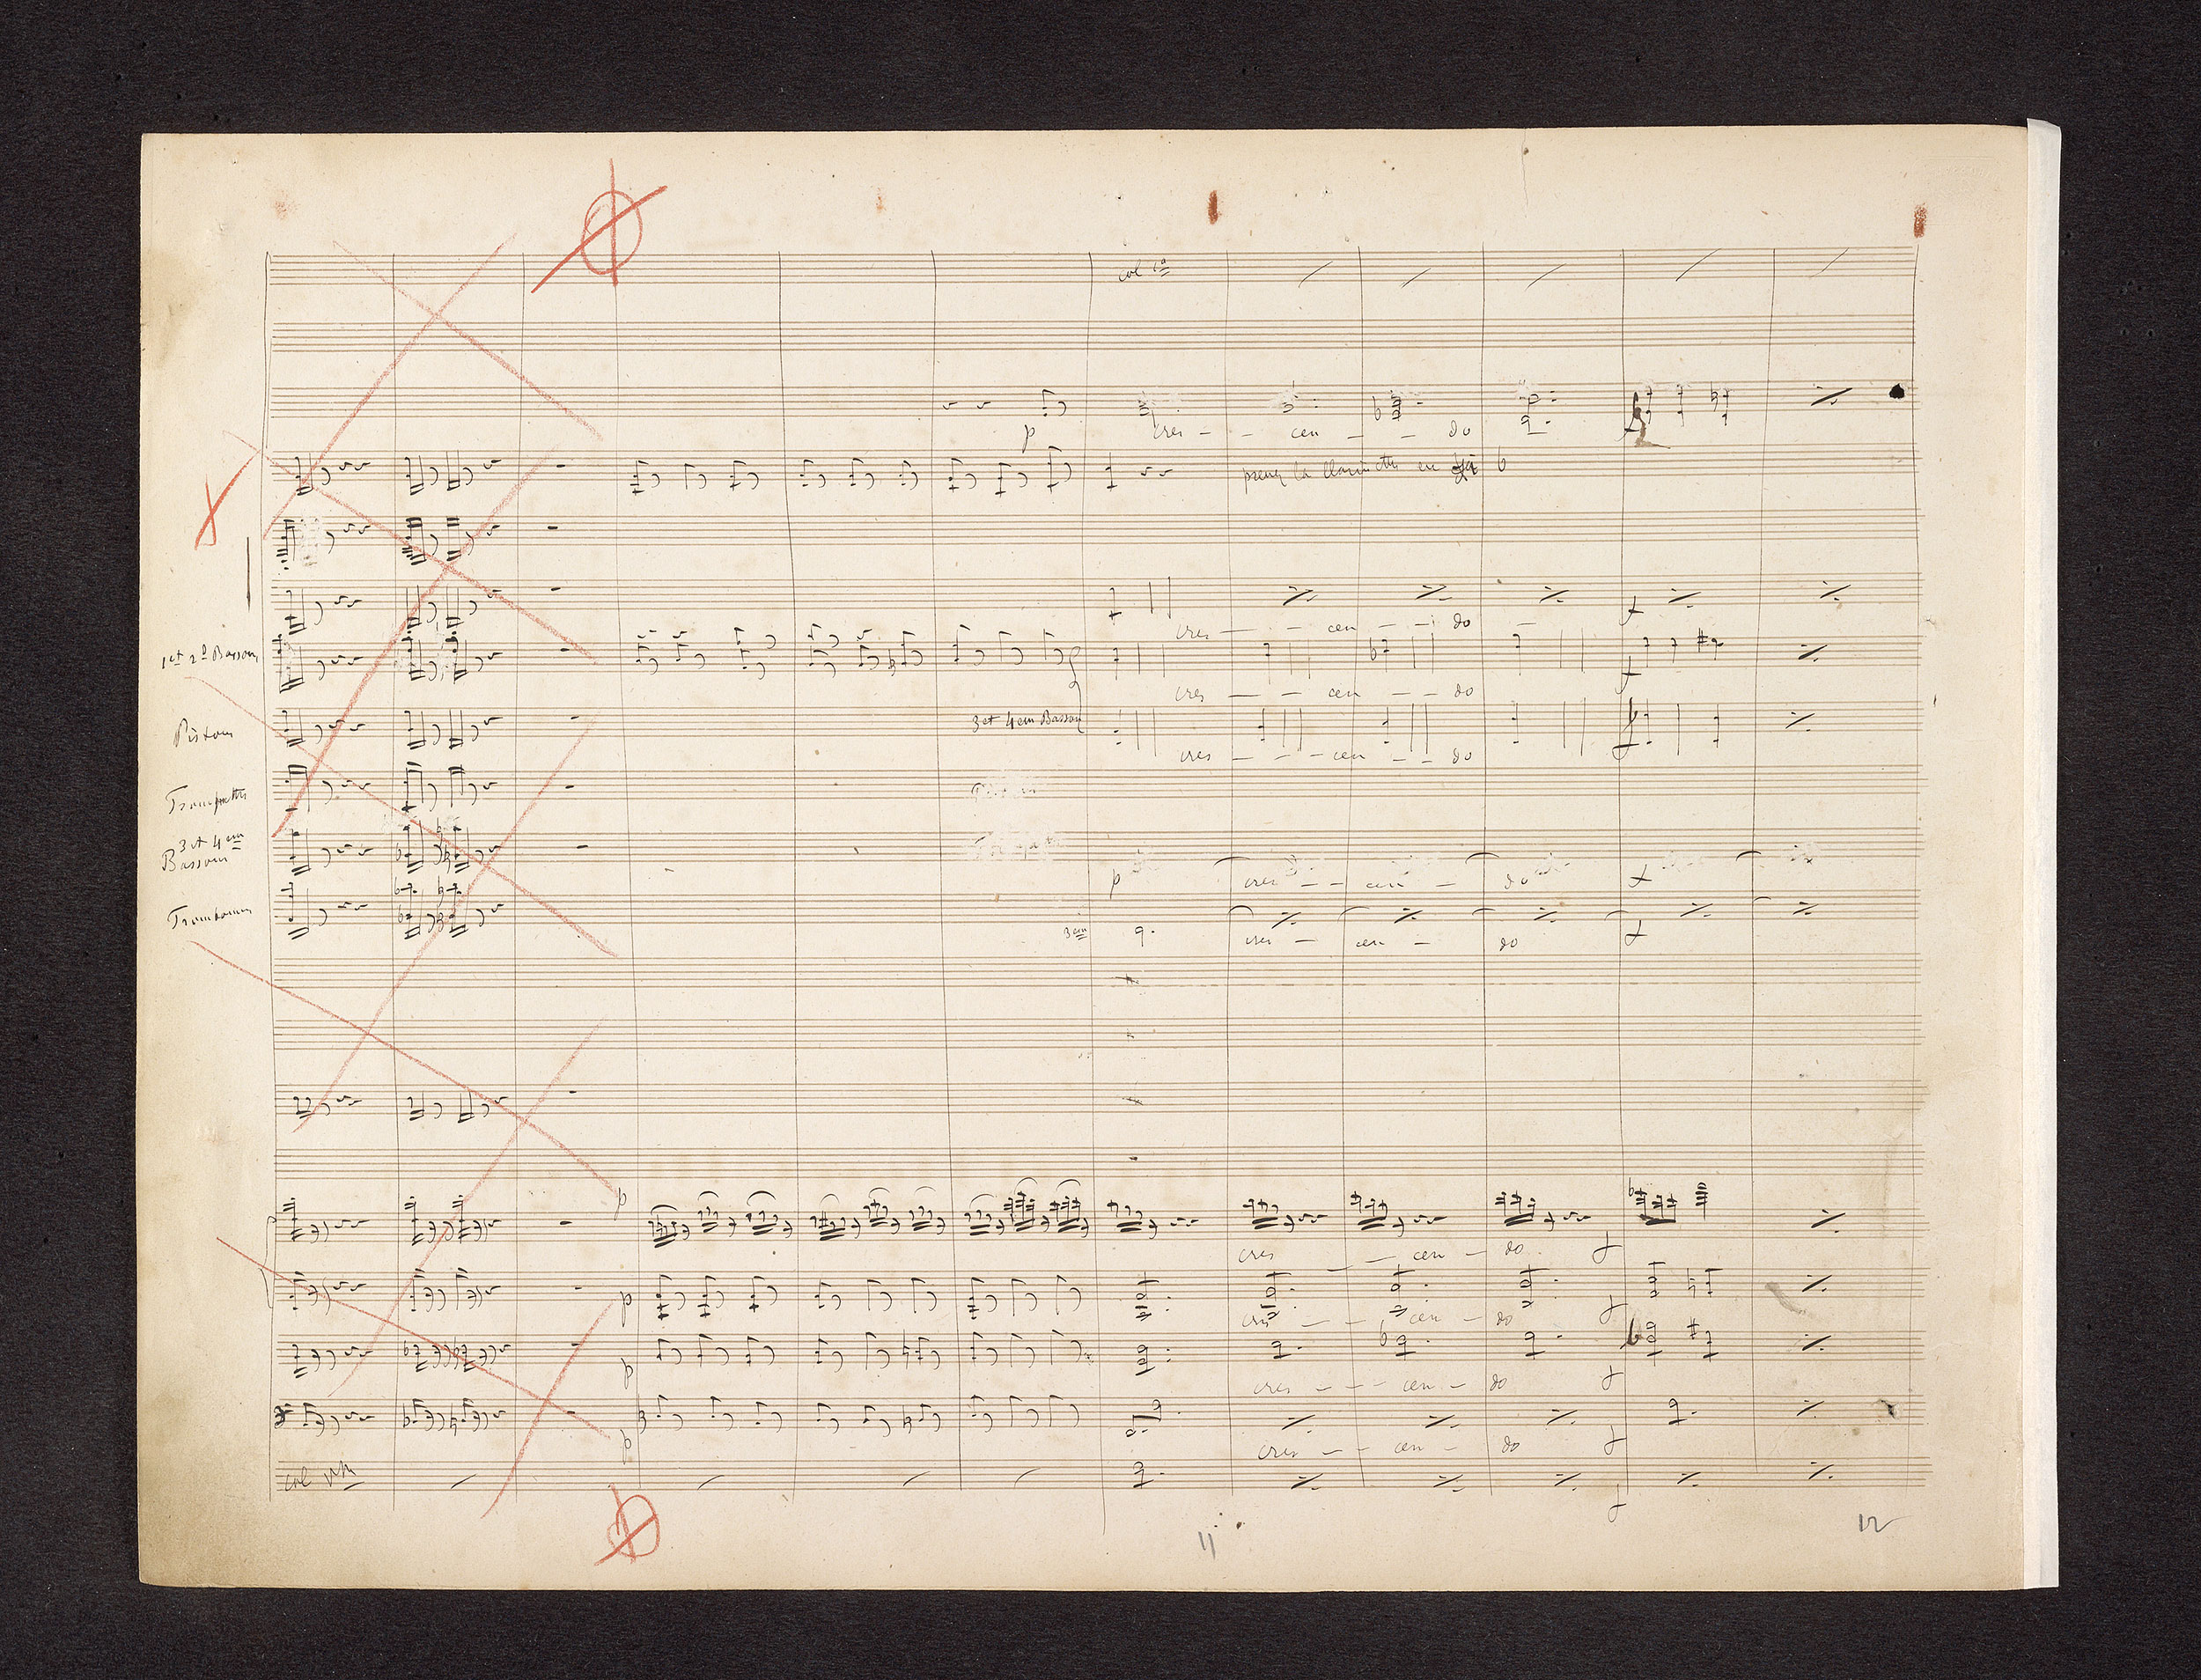 col 1º
p cres - - cen - - do f
prenez la Clarinette en si b
cres - - cen - - do f
1 et 2º Bassons
cres - - cen - - do f
Pistons
3 et 4em Basson
cres - - - cen - - do f
Trompettes
3 et 4em
Bassons
p cres - - cen - do f
Trombonnes
3em
cres - cen - do f
p
cres - - cen - do f
p
cres - - cen - do f
p
cres - - - cen - do f
p
cres - - cen - do f
col
f
11
12